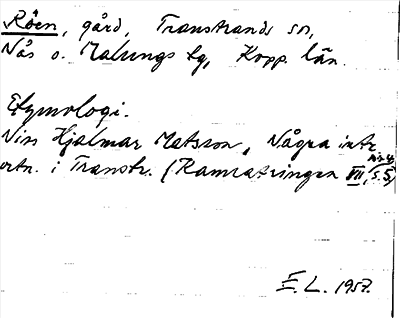 Röen, gård, Transtrands sn,
Nås o. Malungs tg, Kopp. län.
Etymologi.
Niss Hjalmar Matsson, Några intr
ortn. i Transtr. (Ramsatringen VII, nr 4, s. 5)
E. L. 1957.